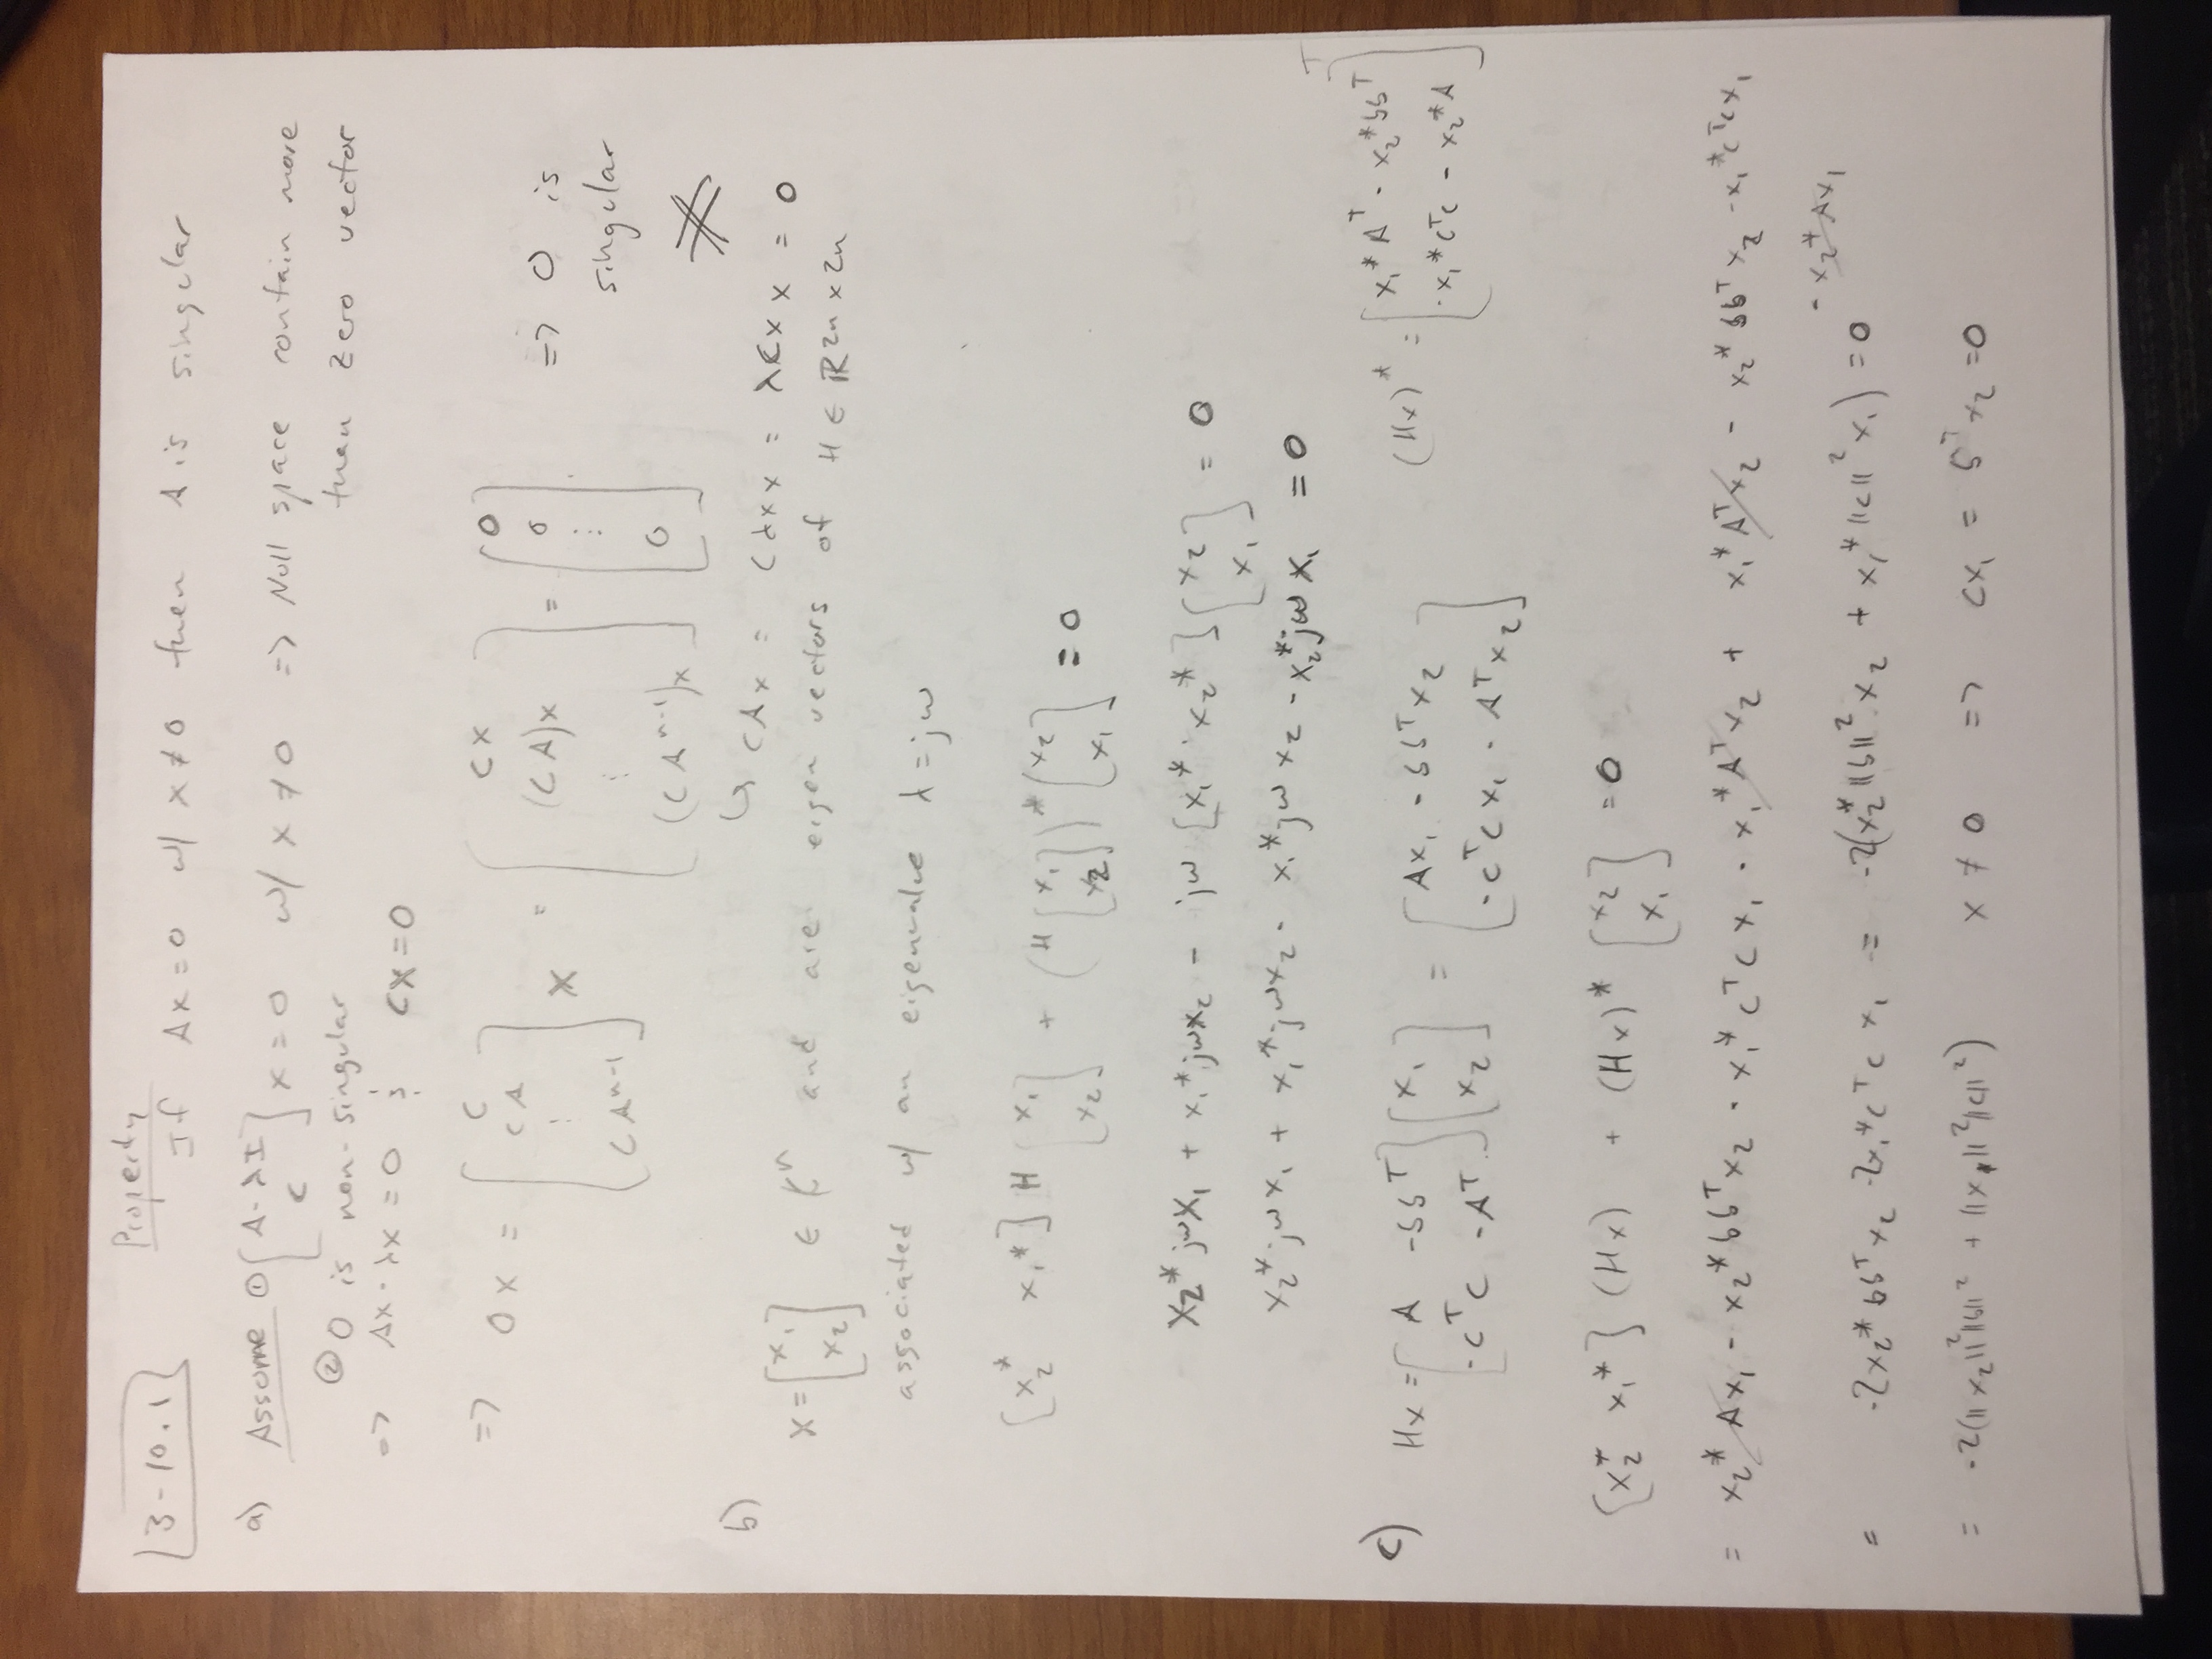 3-10.1
Property
If Ax = 0 w/ x ≠ 0 then A is singular
a) Assume ① [A-λI; C] x = 0 w/ x ≠ 0 => Null space contain more
than zero vector
② O is non-singular
=> Ax - λx = 0 ; Cx = 0
=> Ox = [C; CA; ⋮; CAⁿ⁻¹] x = [Cx; (CA)x; ⋮; (CAⁿ⁻¹)x] = [0; 0; ⋮; 0] => O is
singular
↳ CAx = Cλxx = λCxx = 0
b)
x = [x₁; x₂] ∈ ℂⁿ and are eigen vectors of H ∈ ℝ2n x 2n
associated w/ an eigenvalue λ = jω
[x₂* x₁*] H [x₁; x₂] + (H [x₁; x₂])* [x₂; x₁] = 0
x₂* jωx₁ + x₁* jωx₂ - jω [x₁* x₂*] [x₂; x₁] = 0
x₂* jωx₁ + x₁* jωx₂ - x₁* jωx₂ - x₂* jωx₁ = 0
c) Hx = [A -bbᵀ; -CᵀC -Aᵀ] [x₁; x₂] = [Ax₁ - bbᵀx₂; -CᵀCx₁ - Aᵀx₂] (Hx)* = [x₁*Aᵀ - x₂*bbᵀ; -x₁*CᵀC - x₂*A]ᵀ
[x₂* x₁*] (Hx) + (Hx)* [x₂; x₁] = 0
= x₂*Ax₁ - x₂*bbᵀx₂ - x₁*CᵀCx₁ - x₁*Aᵀx₂ + x₁*Aᵀx₂ - x₂*bbᵀx₂ - x₁*CᵀCx₁
- x₂*Ax₁
= -2x₂*bbᵀx₂ -2x₁*CᵀCx₁ = -2(x₂*||b||²x₂ + x₁*||c||²x₁) = 0
= -2(||x₂||²||b||² + ||x₁||²||c||²) x ≠ 0 => Cx₁ = bᵀx₂ = 0